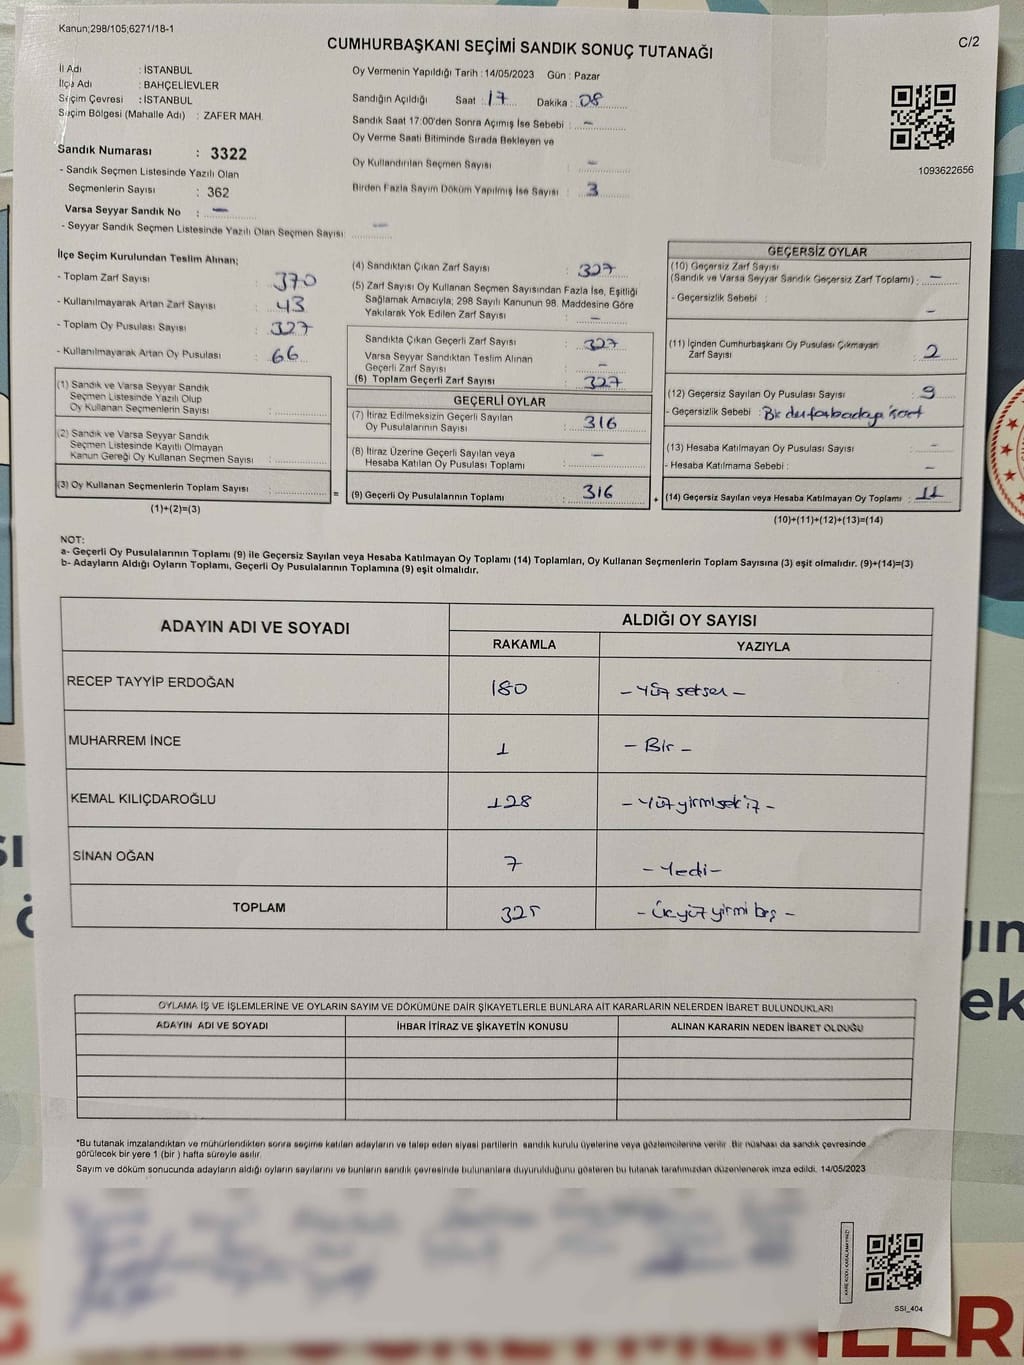 Kanun;298/105;6271/18-1
C/2
CUMHURBAŞKANI SEÇİMİ SANDIK SONUÇ TUTANAĞI
İl Adı : İSTANBUL
İlçe Adı : BAHÇELİEVLER
Seçim Çevresi : İSTANBUL
Seçim Bölgesi (Mahalle Adı) : ZAFER MAH.
Sandık Numarası : 3322
- Sandık Seçmen Listesinde Yazılı Olan
Seçmenlerin Sayısı : 362
Varsa Seyyar Sandık No : –
- Seyyar Sandık Seçmen Listesinde Yazılı Olan Seçmen Sayısı: –
Oy Vermenin Yapıldığı Tarih : 14/05/2023 Gün : Pazar
Sandığın Açıldığı Saat : 17 Dakika : 08
Sandık Saat 17:00'den Sonra Açımış İse Sebebi : –
Oy Verme Saati Bitiminde Sırada Bekleyen ve
Oy Kullandırılan Seçmen Sayısı : –
Birden Fazla Sayım Döküm Yapılmış İse Sayısı : 3
1093622656
İlçe Seçim Kurulundan Teslim Alınan;
- Toplam Zarf Sayısı : 370
- Kullanılmayarak Artan Zarf Sayısı : 43
- Toplam Oy Pusulası Sayısı : 327
- Kullanılmayarak Artan Oy Pusulası : 66
(1) Sandık ve Varsa Seyyar Sandık
Seçmen Listesinde Yazılı Olup
Oy Kullanan Seçmenlerin Sayısı :
(2) Sandık ve Varsa Seyyar Sandık
Seçmen Listesinde Kayıtlı Olmayan
Kanun Gereği Oy Kullanan Seçmen Sayısı :
(3) Oy Kullanan Seçmenlerin Toplam Sayısı : =
(1)+(2)=(3)
(4) Sandıktan Çıkan Zarf Sayısı : 327
(5) Zarf Sayısı Oy Kullanan Seçmen Sayısından Fazla İse, Eşitliği
Sağlamak Amacıyla; 298 Sayılı Kanunun 98. Maddesine Göre
Yakılarak Yok Edilen Zarf Sayısı : –
Sandıkta Çıkan Geçerli Zarf Sayısı : 327
Varsa Seyyar Sandıktan Teslim Alınan
Geçerli Zarf Sayısı : –
(6) Toplam Geçerli Zarf Sayısı : 327
GEÇERLİ OYLAR
(7) İtiraz Edilmeksizin Geçerli Sayılan
Oy Pusulalarının Sayısı : 316
(8) İtiraz Üzerine Geçerli Sayılan veya
Hesaba Katılan Oy Pusulası Toplamı : –
(9) Geçerli Oy Pusulalarının Toplamı : 316 +
GEÇERSİZ OYLAR
(10) Geçersiz Zarf Sayısı
(Sandık ve Varsa Seyyar Sandık Geçersiz Zarf Toplamı) : –
- Geçersizlik Sebebi : –
(11) İçinden Cumhurbaşkanı Oy Pusulası Çıkmayan
Zarf Sayısı : 2
(12) Geçersiz Sayılan Oy Pusulası Sayısı : 9
- Geçersizlik Sebebi :
(13) Hesaba Katılmayan Oy Pusulası Sayısı : –
- Hesaba Katılmama Sebebi : –
(14) Geçersiz Sayılan veya Hesaba Katılmayan Oy Toplamı : 11
(10)+(11)+(12)+(13)=(14)
NOT:
a- Geçerli Oy Pusulalarının Toplamı (9) ile Geçersiz Sayılan veya Hesaba Katılmayan Oy Toplamı (14) Toplamları, Oy Kullanan Seçmenlerin Toplam Sayısına (3) eşit olmalıdır. (9)+(14)=(3)
b- Adayların Aldığı Oyların Toplamı, Geçerli Oy Pusulalarının Toplamına (9) eşit olmalıdır.
ADAYIN ADI VE SOYADI ALDIĞI OY SAYISI
RAKAMLA YAZIYLA
RECEP TAYYİP ERDOĞAN 180 – Yüz seksen –
MUHARREM İNCE 1 – Bir –
KEMAL KILIÇDAROĞLU 128 – Yüz yirmi sekiz –
SİNAN OĞAN 7 – Yedi –
TOPLAM 325 – Üçyüz yirmi beş –
OYLAMA İŞ VE İŞLEMLERİNE VE OYLARIN SAYIM VE DÖKÜMÜNE DAİR ŞİKAYETLERLE BUNLARA AİT KARARLARIN NELERDEN İBARET BULUNDUKLARI
ADAYIN ADI VE SOYADI İHBAR İTİRAZ VE ŞİKAYETİN KONUSU ALINAN KARARIN NEDEN İBARET OLDUĞU
*Bu tutanak imzalandıktan ve mühürlendikten sonra seçime katılan adayların ve talep eden siyasi partilerin sandık kurulu üyelerine veya gözlemcilerine verilir. Bir nüshası da sandık çevresinde
görülecek bir yere 1 (bir ) hafta süreyle asılır.
Sayım ve döküm sonucunda adayların aldığı oyların sayılarını ve bunların sandık çevresinde bulunanlara duyurulduğunu gösteren bu tutanak tarafımızdan düzenlenerek imza edildi. 14/05/2023
SSI_404